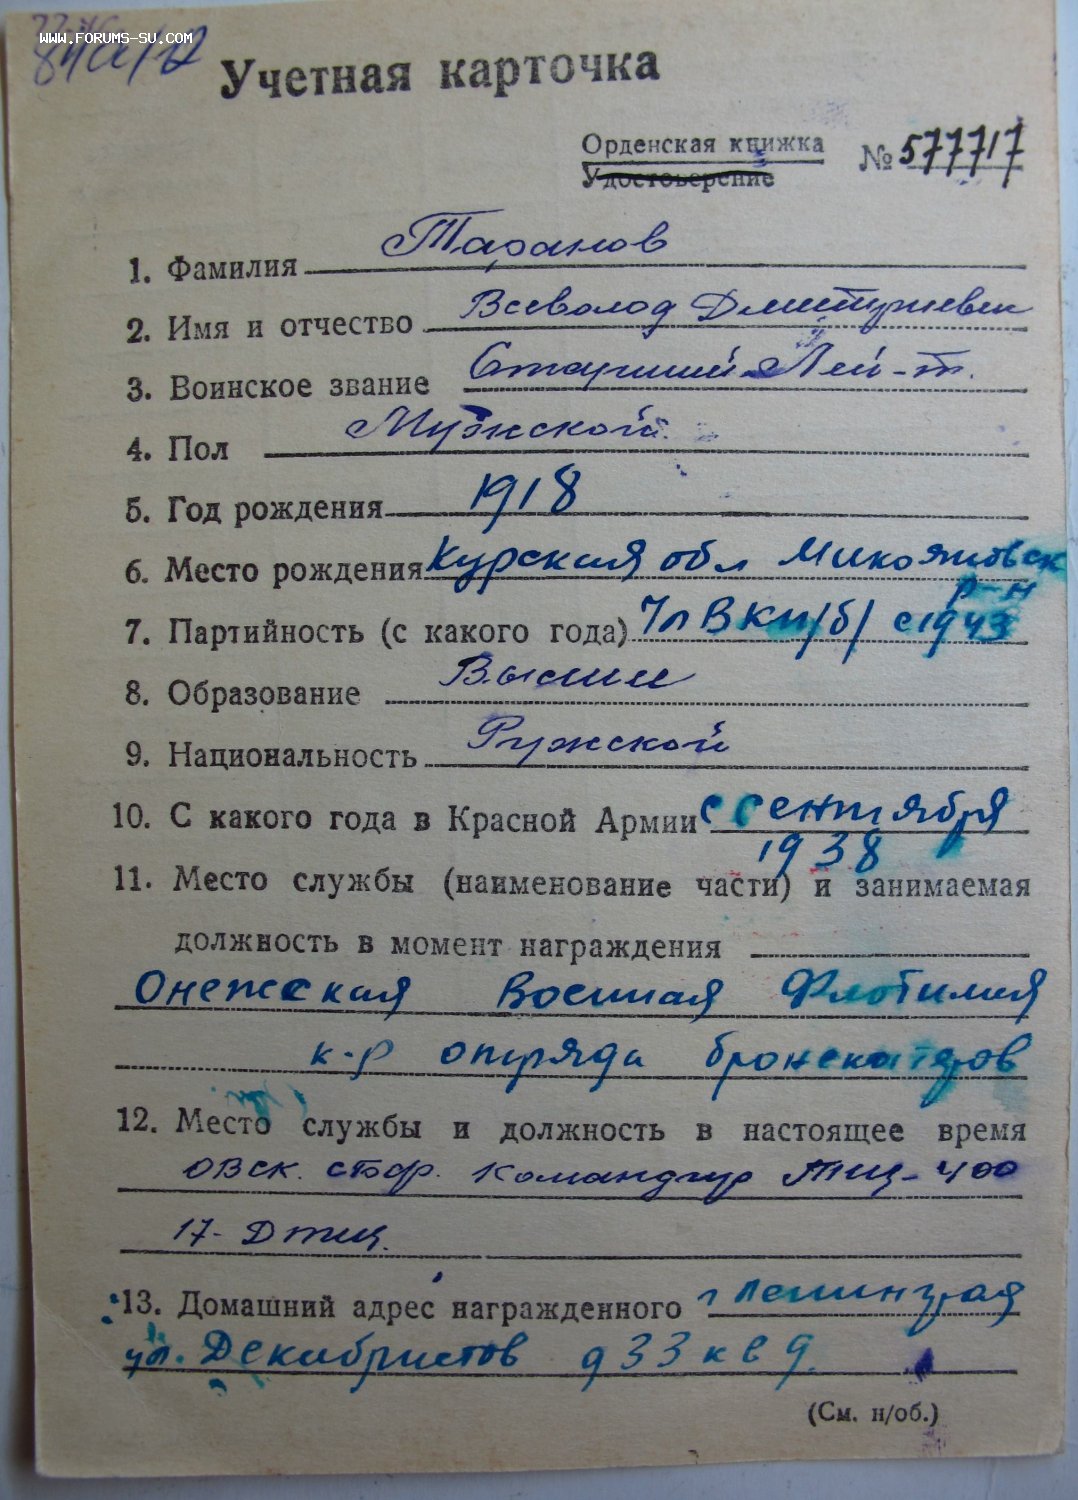 www.forums-su.com
Учетная карточка
Орденская книжка
Удостоверение
№ 577717
1. Фамилия Таранов
2. Имя и отчество Всеволод Дмитриевич
3. Воинское звание Старший Лей-т.
4. Пол Мужской
5. Год рождения 1918
6. Место рождения Курская обл Микояновск
р-н
7. Партийность (с какого года) Чл ВКП/б/ с 1943
8. Образование Высшее
9. Национальность
10. С какого года в Красной Армии с сентября
1938
11. Место службы (наименование части) и занимаемая
должность в момент награждения
Онежская Военная Флотилия
к-р отряда бронекатеров
12. Место службы и должность в настоящее время
Командир ТЩ-400
17-
13. Домашний адрес награжденного г Ленинград
ул. Декабристов д 33 кв 9.
(См. н/об.)